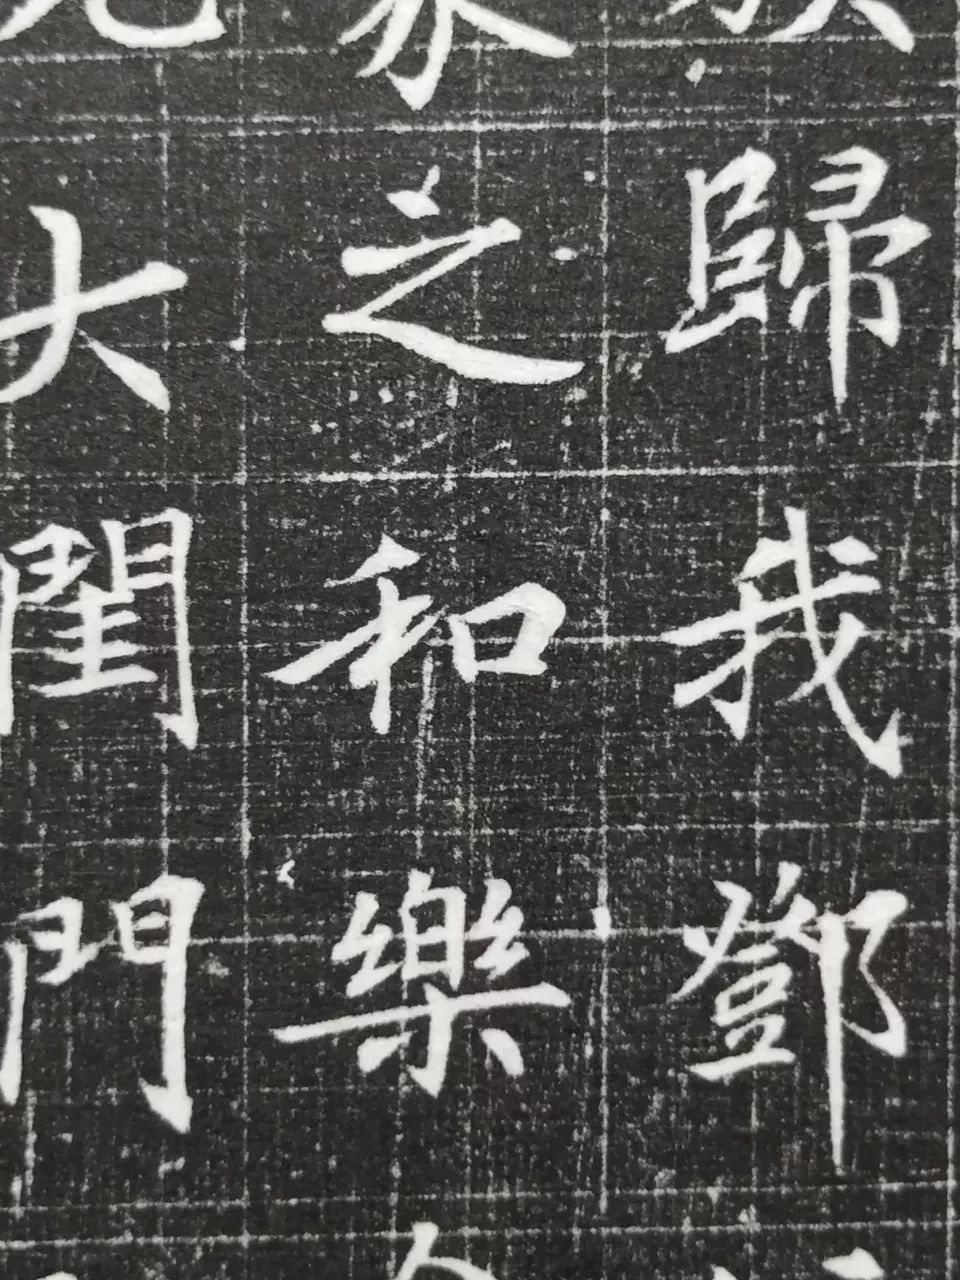 歸我鄧
之和樂
大閨門